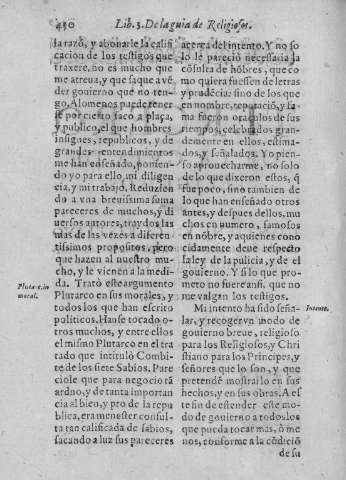 450 Lib. 3. De la guia de Religiosos.
la razõ, y abonarle la calif
cacion de los testigos que
traxere, no es mucho que
me atreua, y que saque a vẽ
der gouierno que no ten-
go. Alomenos puede tener
se por cierto saco a plaça,
y publico, el que hombres
insignes, republicos, y de
grandes entendimientos
me han enseñado, ponien-
do yo para ello, mi diligen
cia, y mi trabajo. Reduzien
do a vna breuissima suma
pareceres de muchos, y di
uersos autores, traydos las
mas de las vezes a diferen
tissimos propositos, pero
que hazen al nuestro mu-
cho, y le vienen a la medi-
da. Tratò este argumento
Plutarco en sus morales, y
todos los que han escrito
politicos. Hanse tocado o-
tros muchos, y entre ellos
el mismo Plutarco en el tra
tado que intitulò Combi-
te de los siete Sabios. Pare
ciole que para negocio tã
arduo, y de tanta importan
cia al bien, y pro de la repu
blica, era menester consul-
ta tan calificada de sabios,
sacando a luz sus pareceres
Plutarc. in
moral.
acerca del intento. Y no so
lo le pareciò necessaria la
cõsulta de hõbres, que co-
mo quiera fuessen de letras
y prudẽcia: sino de los que
en nombre, reputaciõ, y fa
ma fueron oraculos de sus
tiempos, celebrados gran-
demente en ellos, estima-
dos, y señalados. Yo pien-
so aprouecharme, no solo
de lo que dixeron estos, q̃
fue poco, sino tambien de
lo que han enseñado otros
antes, y despues dellos, mu
chos en numero, famosos
en nõbre, y a quienes cono
cidamente deue respecto
la ley de la pulicia, y de el
gouierno. Y si lo que pro-
meto no fuere ansi, que no
me valgan los testigos.
Mi intento ha sido seña-
lar, y recoger vn modo de
gouierno breue, religioso
para los Religiosos, y Chri
stiano para los Principes, y
señores que lo son, y que
pretendẽ mostrarlo en sus
hechos, y en sus obras. A es
te fin de estender este mo-
do de gouierno a todos los
que pueda tocar mas, ò me
nos, conforme a la cõdiciõ
de su
Intento.